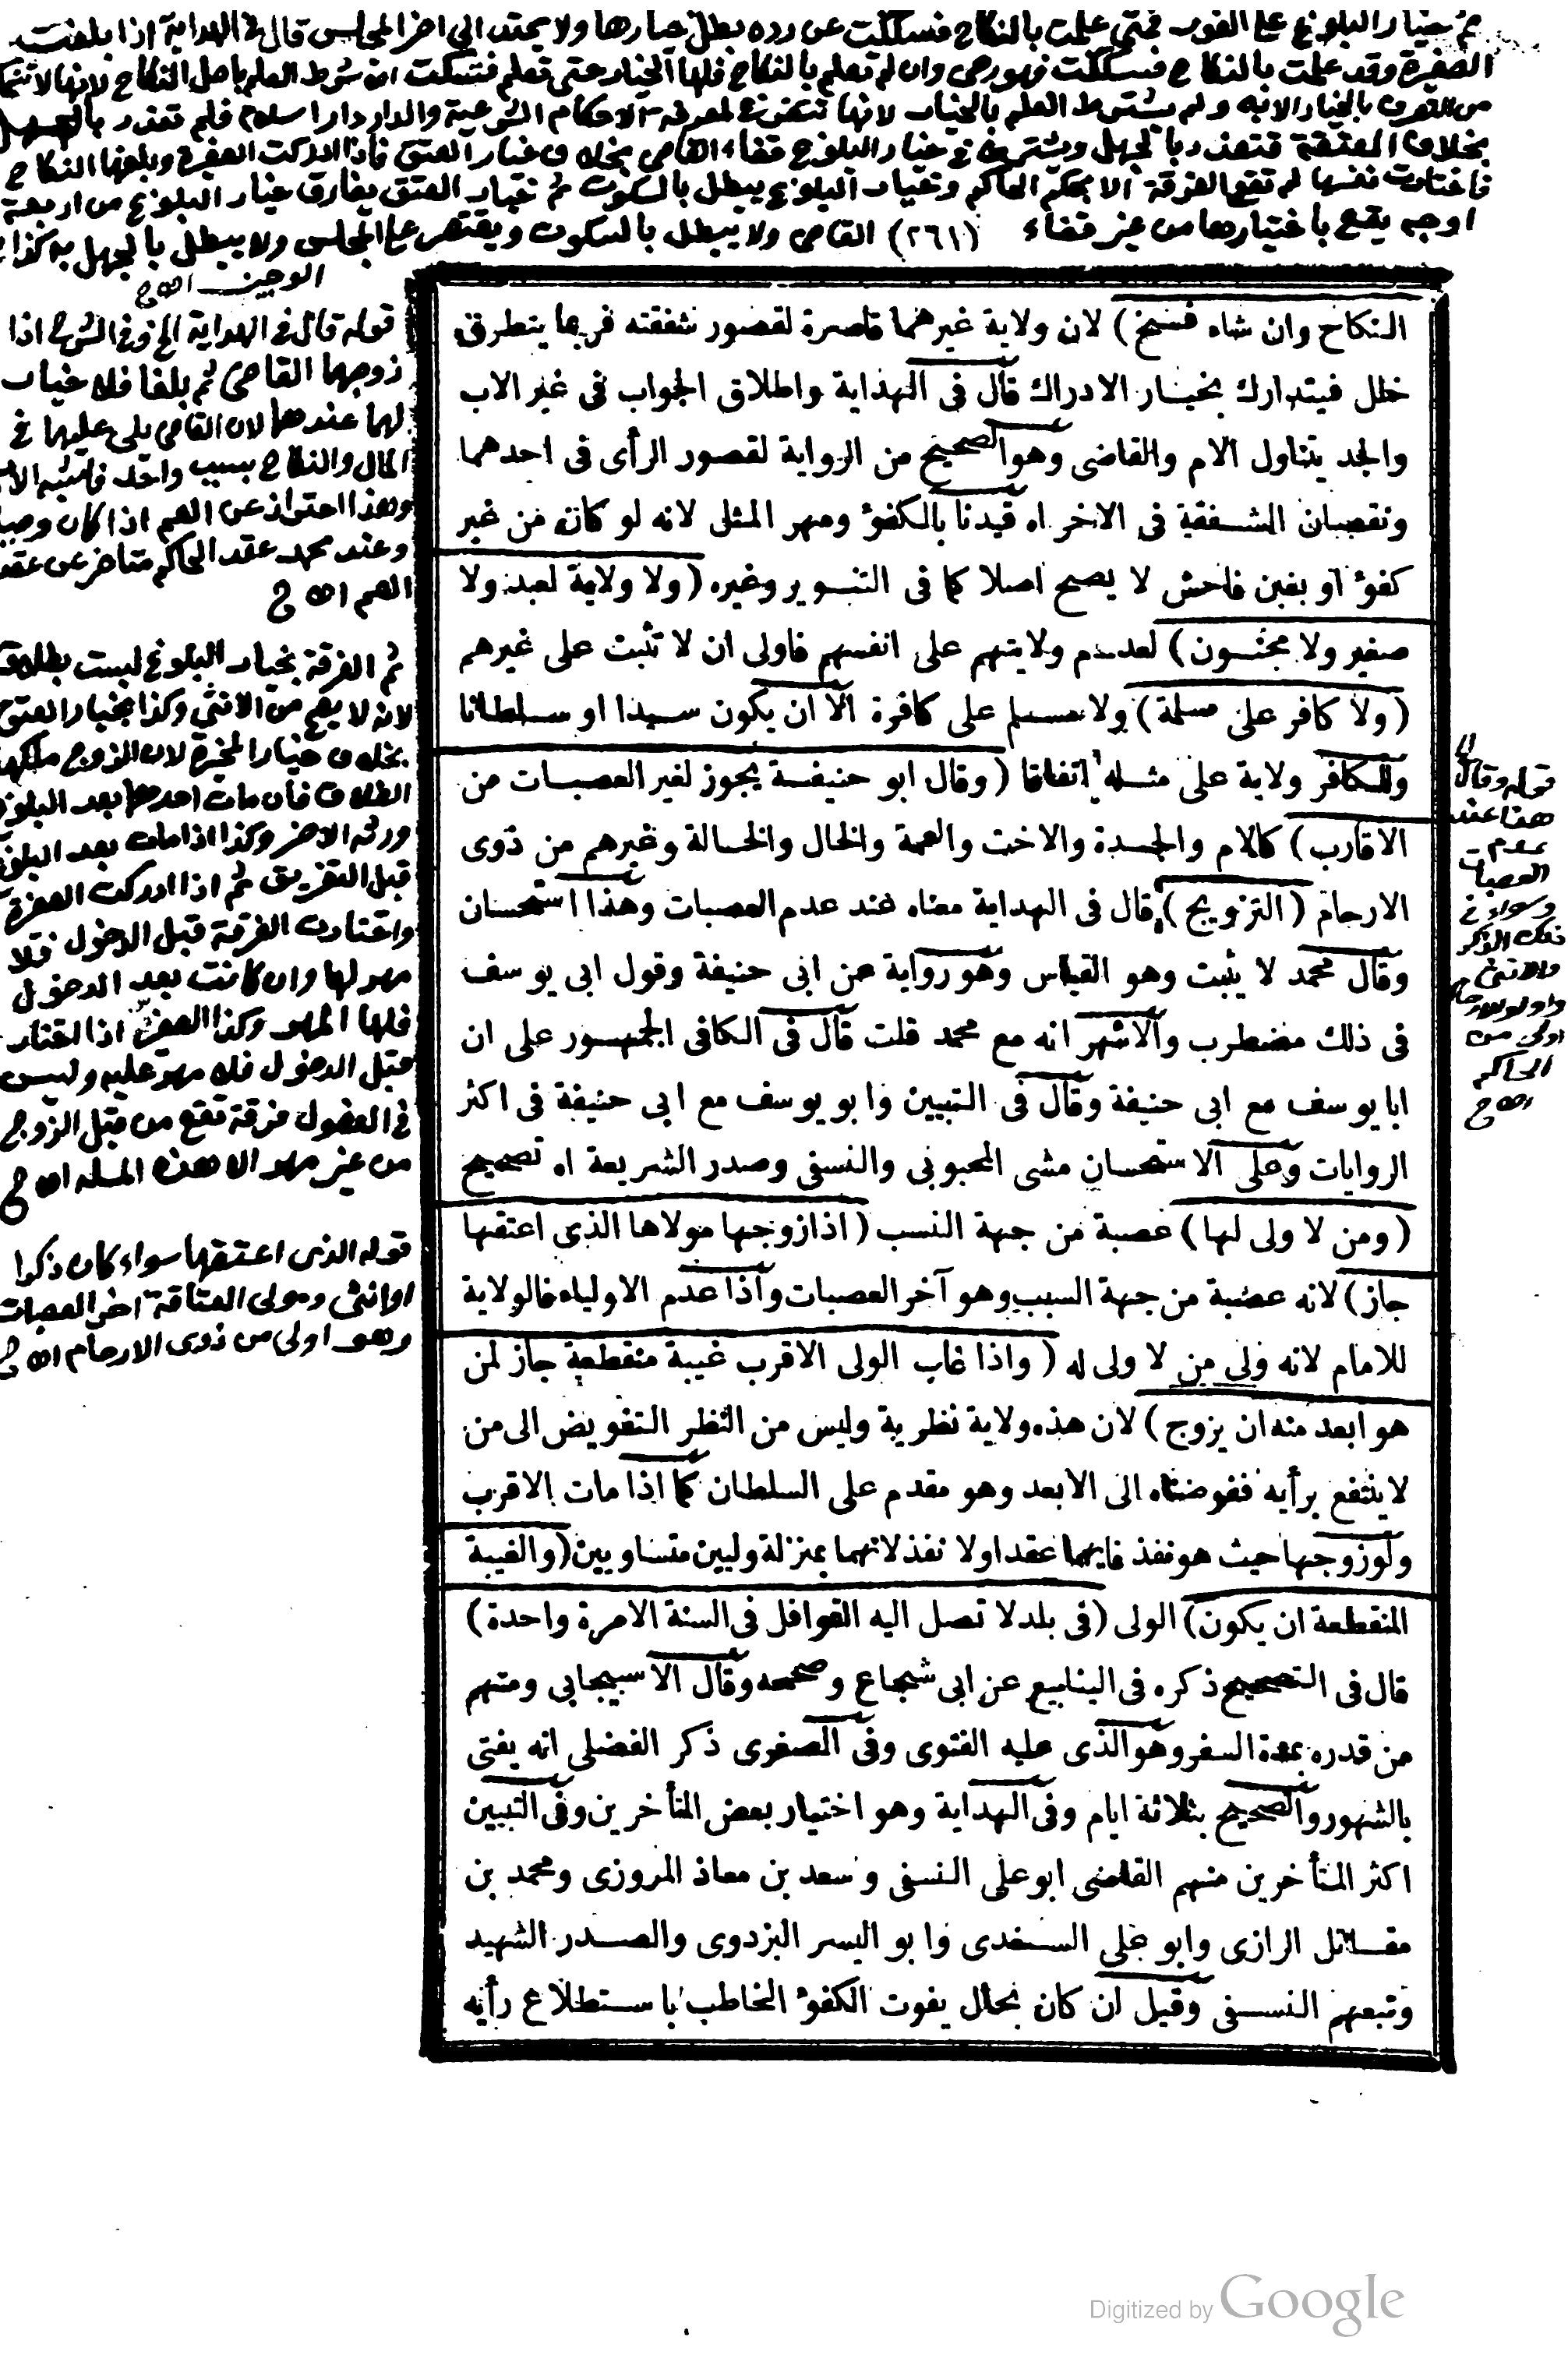 ثم خيار البلوغ على الفور فمتى علمت بالنكاح فسكتت عن رده بطل خيارها ولا يمتد الى اخر المجلس قال فى الهداية اذا بلغت
الصغيرة وقد علمت بالنكاح فسكتت فهو رضى وان لم تعلم بالنكاح فلها الخيار حتى تعلم فتسكت شرط العلم باصل النكاح لانها لا
من التصرف بالخيار الا به ولم يشترط العلم بالخيار لانها تتفرغ لمعرفة الاحكام الشرعية والدار دار اسلام فلم تعذر بالجهل
بخلاف المعتقة فتعذر بالجهل ويشترط فى خيار البلوغ قضاء القاضى بخلاف خيار العتق فاذا ادركت الصغيرة وبلغها النكاح
فاختارت نفسها لم تقع الفرقة الا بحكم الحاكم وخيار البلوغ يبطل بالسكوت ثم خيار العتق يفارق خيار البلوغ من اربعة
اوجه يقع باختيارها من غير قضاء (٢٦١) القاضى ولا يبطل بالسكوت ويقتصر على المجلس ولا يبطل بالجهل به كذا
الوجيز اه ح
النكاح وان شاه فسخ) لان ولاية غيرهما قاصرة لقصور شفقته فربما يتطرق
خلل فيتدارك بخيار الادراك قال فى الهداية واطلاق الجواب فى غير الاب
والجد يتناول الام والقاضى وهو الصحيح من الرواية لقصور الرأى فى احدهما
ونقصان الشفقة فى الاخر اه قيدنا بالكفؤ ومهر المثل لانه لو كان من غير
كفؤ او بغبن فاحش لا يصح اصلا كما فى التنوير وغيره (ولا ولاية لعبد ولا
صغير ولا مجنون) لعدم ولايتهم على انفسهم فاولى ان لا تثبت على غيرهم
(ولا كافر على مسلمة) ولا مسلم على كافرة الا ان يكون سيدا او سلطانا
وللكافر ولاية على مثله اتفاقا (وقال ابو حنيفة يجوز لغير العصبات من
الاقارب) كالام والجدة والاخت والعمة والخال والخالة وغيرهم من ذوى
الارحام (التزويج) قال فى الهداية معناه عند عدم العصبات وهذا استحسان
وقال محمد لا يثبت وهو القياس وهو رواية عن ابى حنيفة وقول ابى يوسف
فى ذلك مضطرب والاشهر انه مع محمد قلت قال فى الكافى الجمهور على ان
ابا يوسف مع ابى حنيفة وقال فى التبيين وابو يوسف مع ابى حنيفة فى اكثر
الروايات وعلى الاستحسان مشى المحبوبى والنسفى وصدر الشريعة اه تصحيح
(ومن لا ولى لها) عصبة من جهة النسب (اذا زوجها مولاها الذى اعتقها
جاز) لانه عصبة من جهة السبب وهو آخر العصبات واذا عدم الاولياء فالولاية
للامام لانه ولى من لا ولى له (واذا غاب الولى الاقرب غيبة منقطعة جاز لمن
هو ابعد منه ان يزوج) لان هذه ولاية نظرية وليس من النظر التفويض الى من
لا ينتفع برأيه ففوضناه الى الابعد وهو مقدم على السلطان كما اذا مات الاقرب
ولو زوجها حيث هو نفذ فايهما عقد اولا نفذ لانهما بمنزلة وليين متساويين (والغيبة
المنقطعة ان يكون) الولى (فى بلد لا تصل اليه القوافل فى السنة الا مرة واحدة)
قال فى التصحيح ذكره فى الينابيع عن ابى شجاع وصححه وقال الاسبيجابى ومنهم
من قدره بمدة السفر وهو الذى عليه الفتوى وفى الصغرى ذكر الفضلى انه يفتى
بالشهور والصحيح بثلاثة ايام وفى الهداية وهو اختيار بعض المتأخرين وفى التبيين
اكثر المتأخرين منهم القاضى ابو على النسفى وسعد بن معاذ المروزى ومحمد بن
مقاتل الرازى وابو على السغدى وابو اليسر البزدوى والصدر الشهيد
وتبعهم النسفى وقيل ان كان بحال يفوت الكفؤ الخاطب باستطلاع رأيه
قوله قال فى الهداية الخ وفى الشرح اذا
زوجهما القاضى ثم بلغا فلا خيار
لهما عندهما لان القاضى يلى عليهما فى
المال والنكاح بسبب واحد فاشبه الاب
وهذا احتراز عن العم اذا كان وصيا
وعند محمد عقد الحاكم متاخر عن عقد
العم اه ح
ثم الفرقة بخيار البلوغ ليست بطلاق
لانه لا يصح من الانثى وكذا بخيار العتق
بخلاف خيار المخيرة لان الزوج ملكها
الطلاق فان مات احدهما بعد البلوغ
ورثه الاخر وكذا اذا مات بعد البلوغ
قبل التفريق ثم اذا ادركت الصغيرة
واختارت الفرقة قبل الدخول فلا
مهر لها وان كانت بعد الدخول
فلها المهر وكذا الصغير اذا اختار
قبل الدخول فلا مهر عليه وليس
فى الفصول فرقة تقع من قبل الزوج
من غير مهر الا هذه المسئله اه ح
قوله الذى اعتقها سواء كان ذكرا
او انثى ومولى العتاقة اخر العصبات
وهو اولى من ذوى الارحام اه ح
قوله وقال
هذا عند
عدم
العصبات
وسواء فى
ذلك الذكر
والانثى
اولى من
الحاكم
اه ح
Digitized by Google